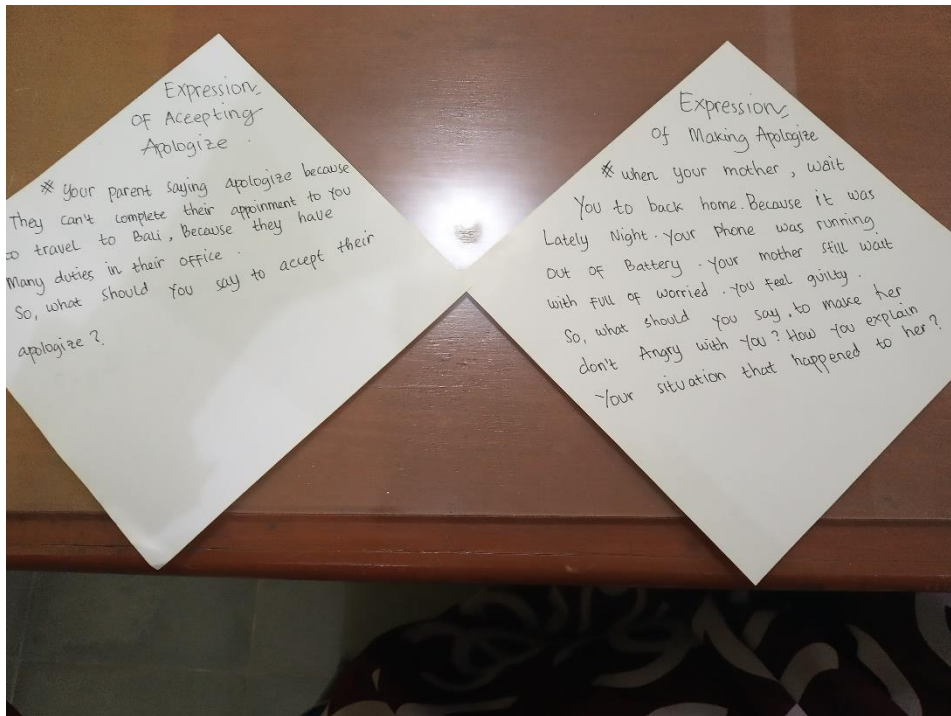 Expression
Of Accepting
Apologize
* Your parent saying apologize because
They can't complete their appoinment to You
to travel to Bali, Because they have
Many duties in their office.
So, what should You say to accept their
apologize?
Expression
Of Making Apologize
* when your mother, wait
You to back home. Because it was
Lately Night. Your Phone was running
out of Battery. Your mother still wait
with full of worried. You feel guilty.
So, what should you say, to make her
don't Angry with You? How you explain
Your situation that happened to her?